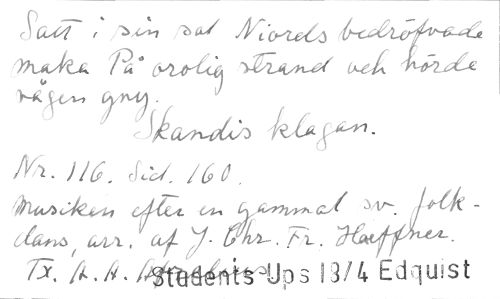 Satt i sin sal Niords bedröfvade
maka På orolig strand och hörde
vågen gny.
Skandis klagan.
Nr. 116. Sid. 160.
Musiken efter en gammal sv. folk-
dans, arr. af J. Chr. Fr. Hæffner.
Tx. A. A.
Students Ups 18/4 Edquist